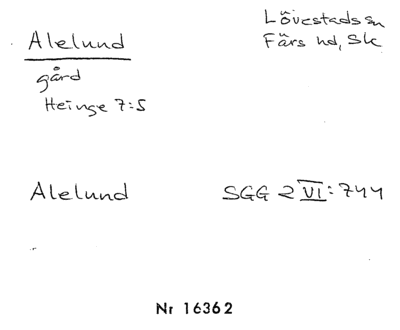 Alelund
Lövestads sn
Färs hd, Sk
gård
Heinge 7:5
Alelund
SGG 2 VI: 744
Nr 16362